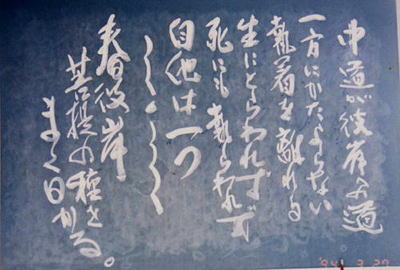 中道が彼岸の道
一方にかたよらない
執着を離れる
生にとらわれず
死にも執らわれず
自他は一つ
春彼岸
其撰の種を
まく日かな。
'94 3 27